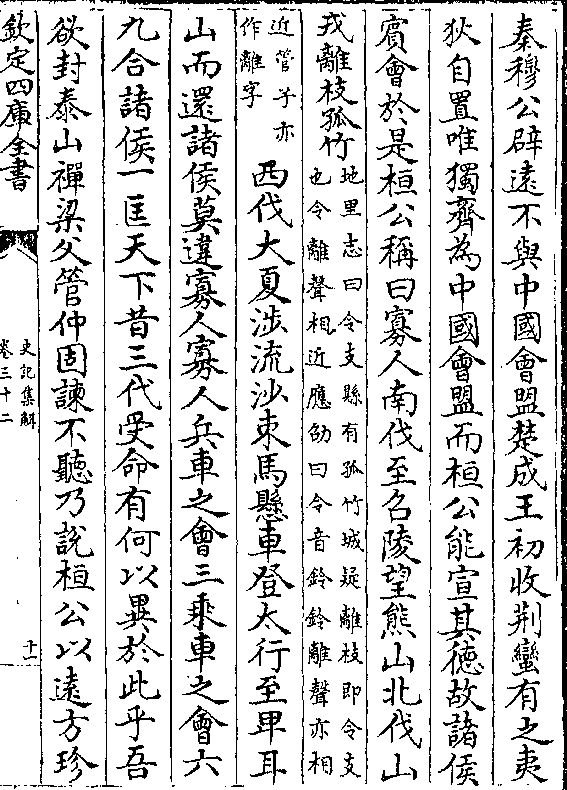 秦穆公辟遠不與中國會盟楚成王初收荆蠻有之夷
狄自置唯獨齊為中國會盟而桓公能宣其德故諸侯
賓會於是桓公稱曰寡人南伐至召陵望熊山北伐山
戎離枝孤竹
地里志曰令支縣有孤竹城疑離枝即令支
也令離聲相近應劭曰令音鈴鈴離聲亦相
近管子亦
作離字
西伐大夏涉流沙束馬懸車登太行至卑耳
山而還諸侯莫違寡人寡人兵車之會三乘車之會六
九合諸侯一匡天下昔三代受命有何以異於此乎吾
欲封泰山禪梁父管仲固諫不聽乃說桓公以遠方珍
欽定四庫全書
史記集解
卷三十二
十一